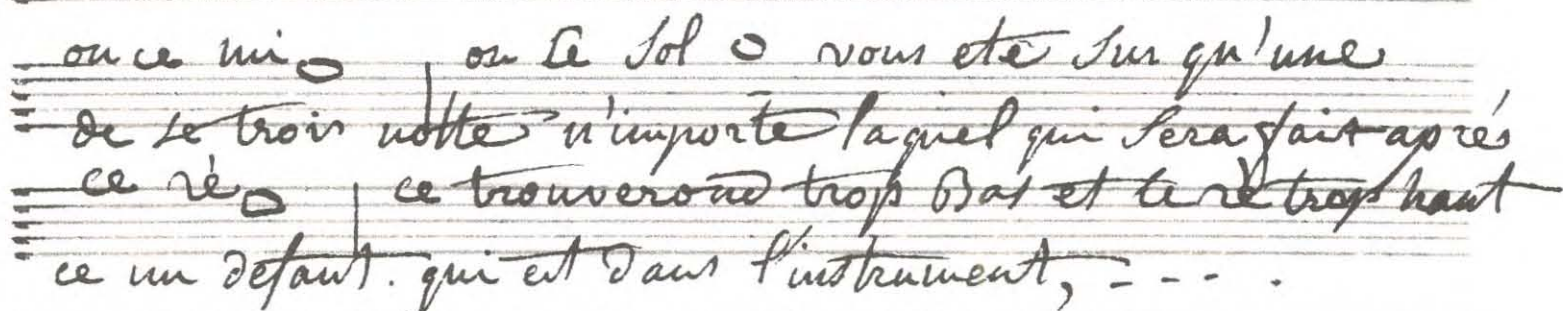 ou ce mi ou le sol vous ete sur qu'une
de se trois notte n'importe laquel qui sera fait aprés
ce ré ce trouveront trop Bas et le ré trop haut
ce un defaut. qui est dans l'instrument, - - - .